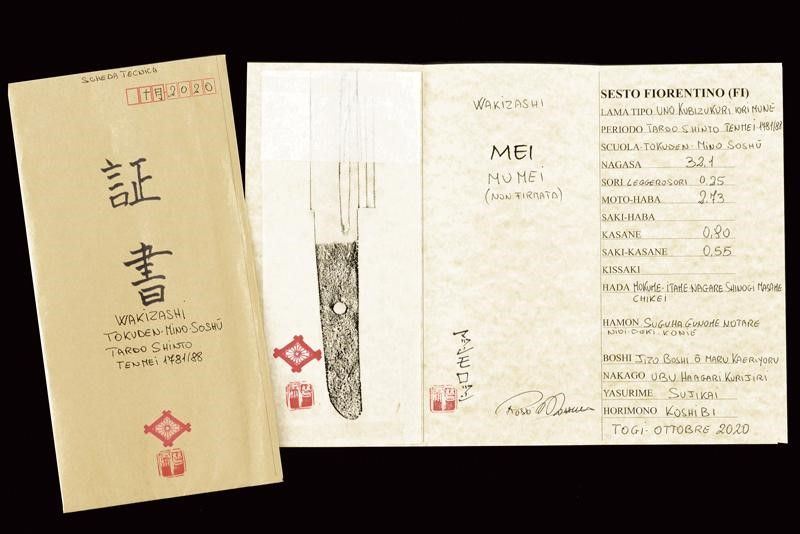 SCHEDA TECNICA
十月 2020
証
書
WAKIZASHI
TOKUDEN-MINO-SOSHŪ
TARDO SHINTO
TENMEI 1781/88
WAKIZASHI
MEI
MUMEI
(NON FIRMATA)
SESTO FIORENTINO (FI)
LAMA TIPO UNO KUBIZUKURI IORI MUNE
PERIODO TARDO SHINTO TENMEI 1781/88
SCUOLA-TOKUDEN-MINO SOSHŪ
NAGASA 32,1
SORI LEGGEROSORI 0,25
MOTO-HABA 2,73
SAKI-HABA
KASANE 0,80
SAKI-KASANE 0,55
KISSAKI
HADA MOKUME-ITAME NAGARE SHINOGI MASAME
CHIKEI
HAMON SUGUHA GUNOME NOTARE
BOSHI JIZO BOSHI Ō MARU KAERIYORU
NAKAGO UBU HAAGARI KURIJIRI
YASURIME SUJIKAI
HORIMONO KOSHIBI
TOGI-OTTOBRE 2020